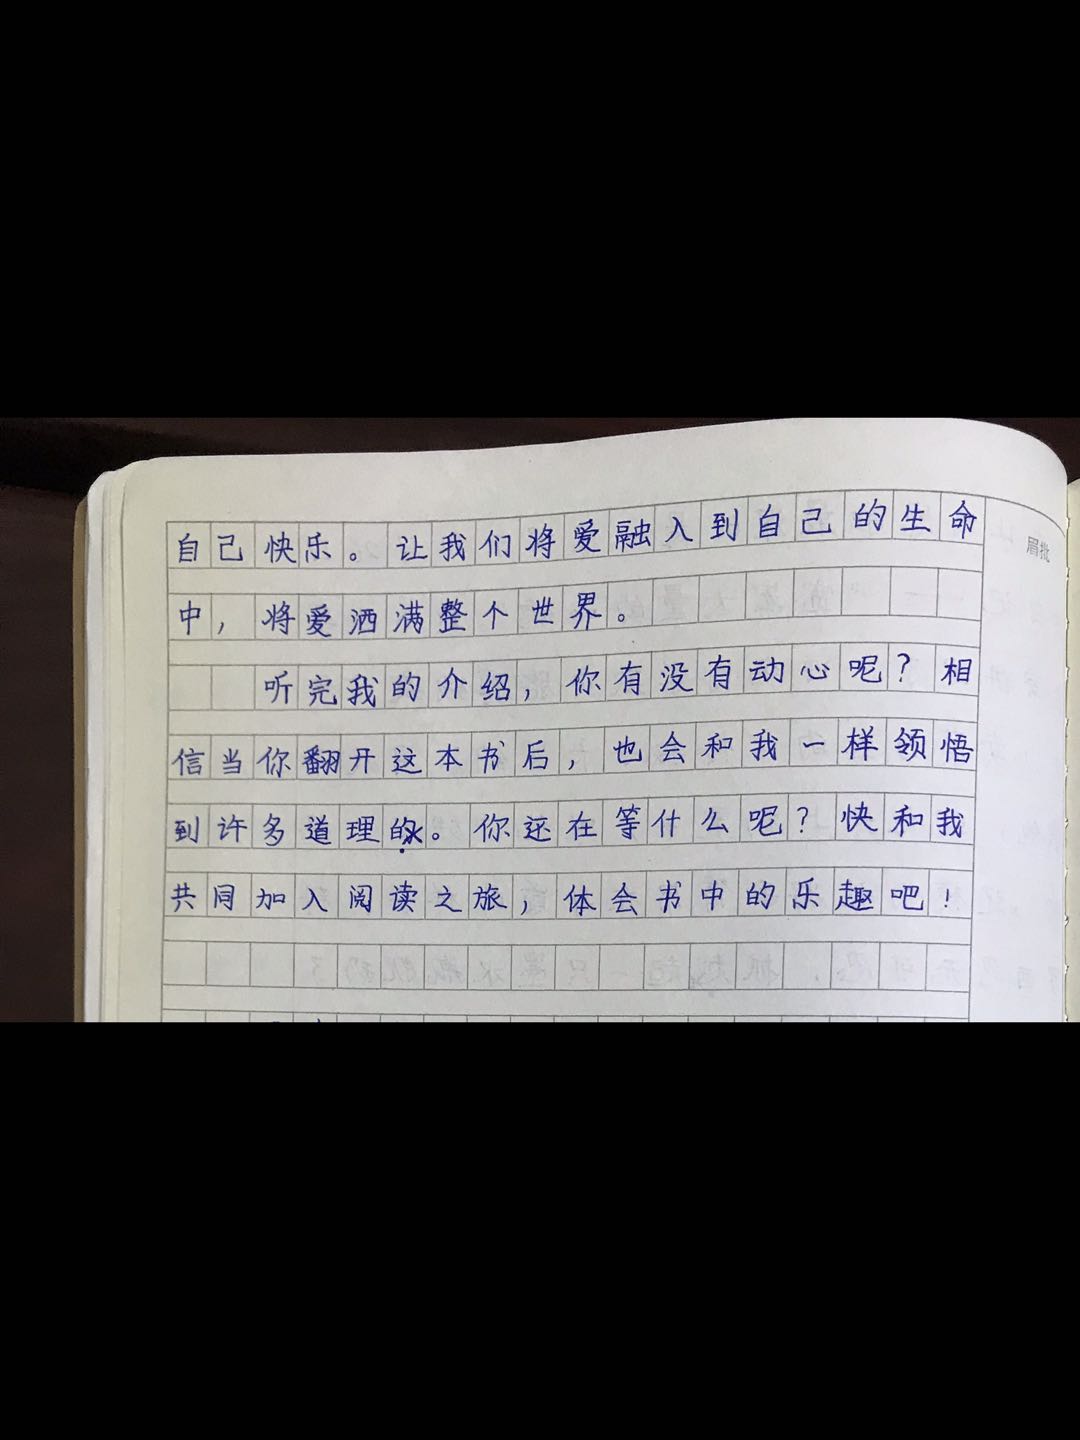 自己快乐。让我们将爱融入到自己的生命
眉批
中，将爱洒满整个世界。
听完我的介绍，你有没有动心呢？相
信当你翻开这本书后，也会和我一样领悟
到许多道理的。你还在等什么呢？快和我
共同加入阅读之旅，体会书中的乐趣吧！